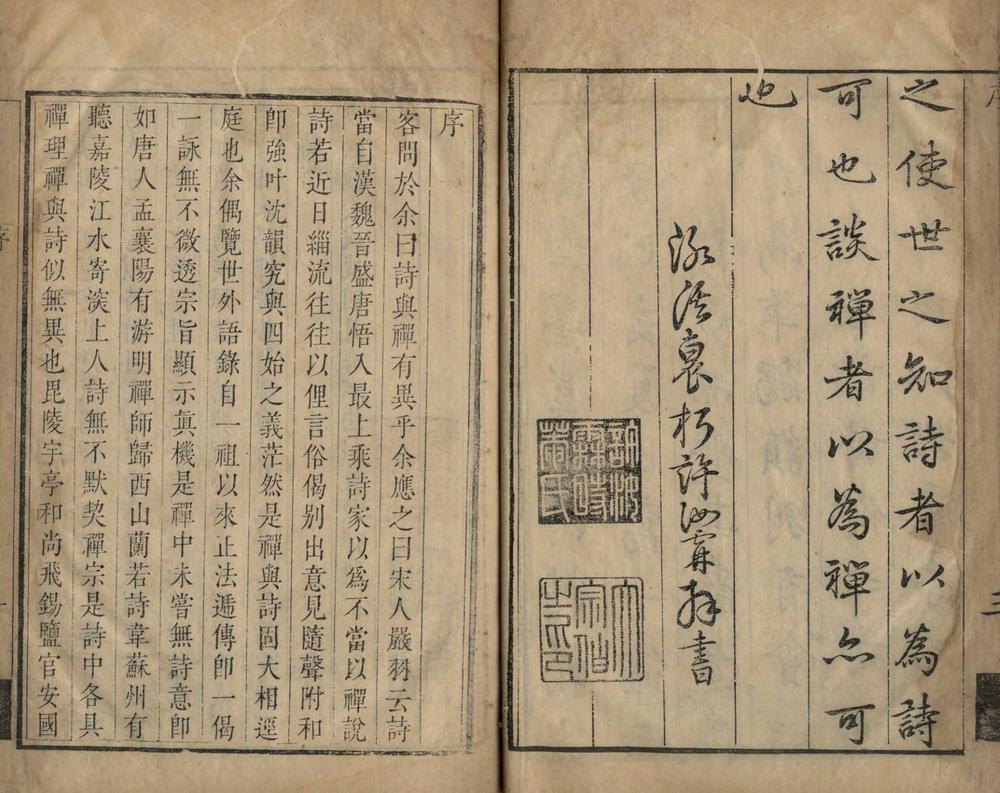 之使世之知詩者以為詩
可也談禪者以為禪亦可
也
衰朽許汝霖拜書
許汝霖時菴氏
大宗伯之印
序
客問於余曰詩與禪有異乎余應之曰宋人嚴羽云詩
當自漢魏晉盛唐悟入最上乘詩家以爲不當以禪說
詩若近日緇流往往以俚言俗偈別出意見隨聲附和
卽強叶沈韻究與四始之義茫然是禪與詩固大相逕
庭也余偶覽世外語錄自一祖以來正法遞傳卽一偈
一詠無不微透宗旨顯示眞機是禪中未嘗無詩意卽
如唐人孟襄陽有游明禪師歸西山蘭若詩韋蘇州有
聽嘉陵江水寄深上人詩無不默契禪宗是詩中各具
禪理禪與詩似無異也毘陵宇亭和尚飛錫鹽官安國